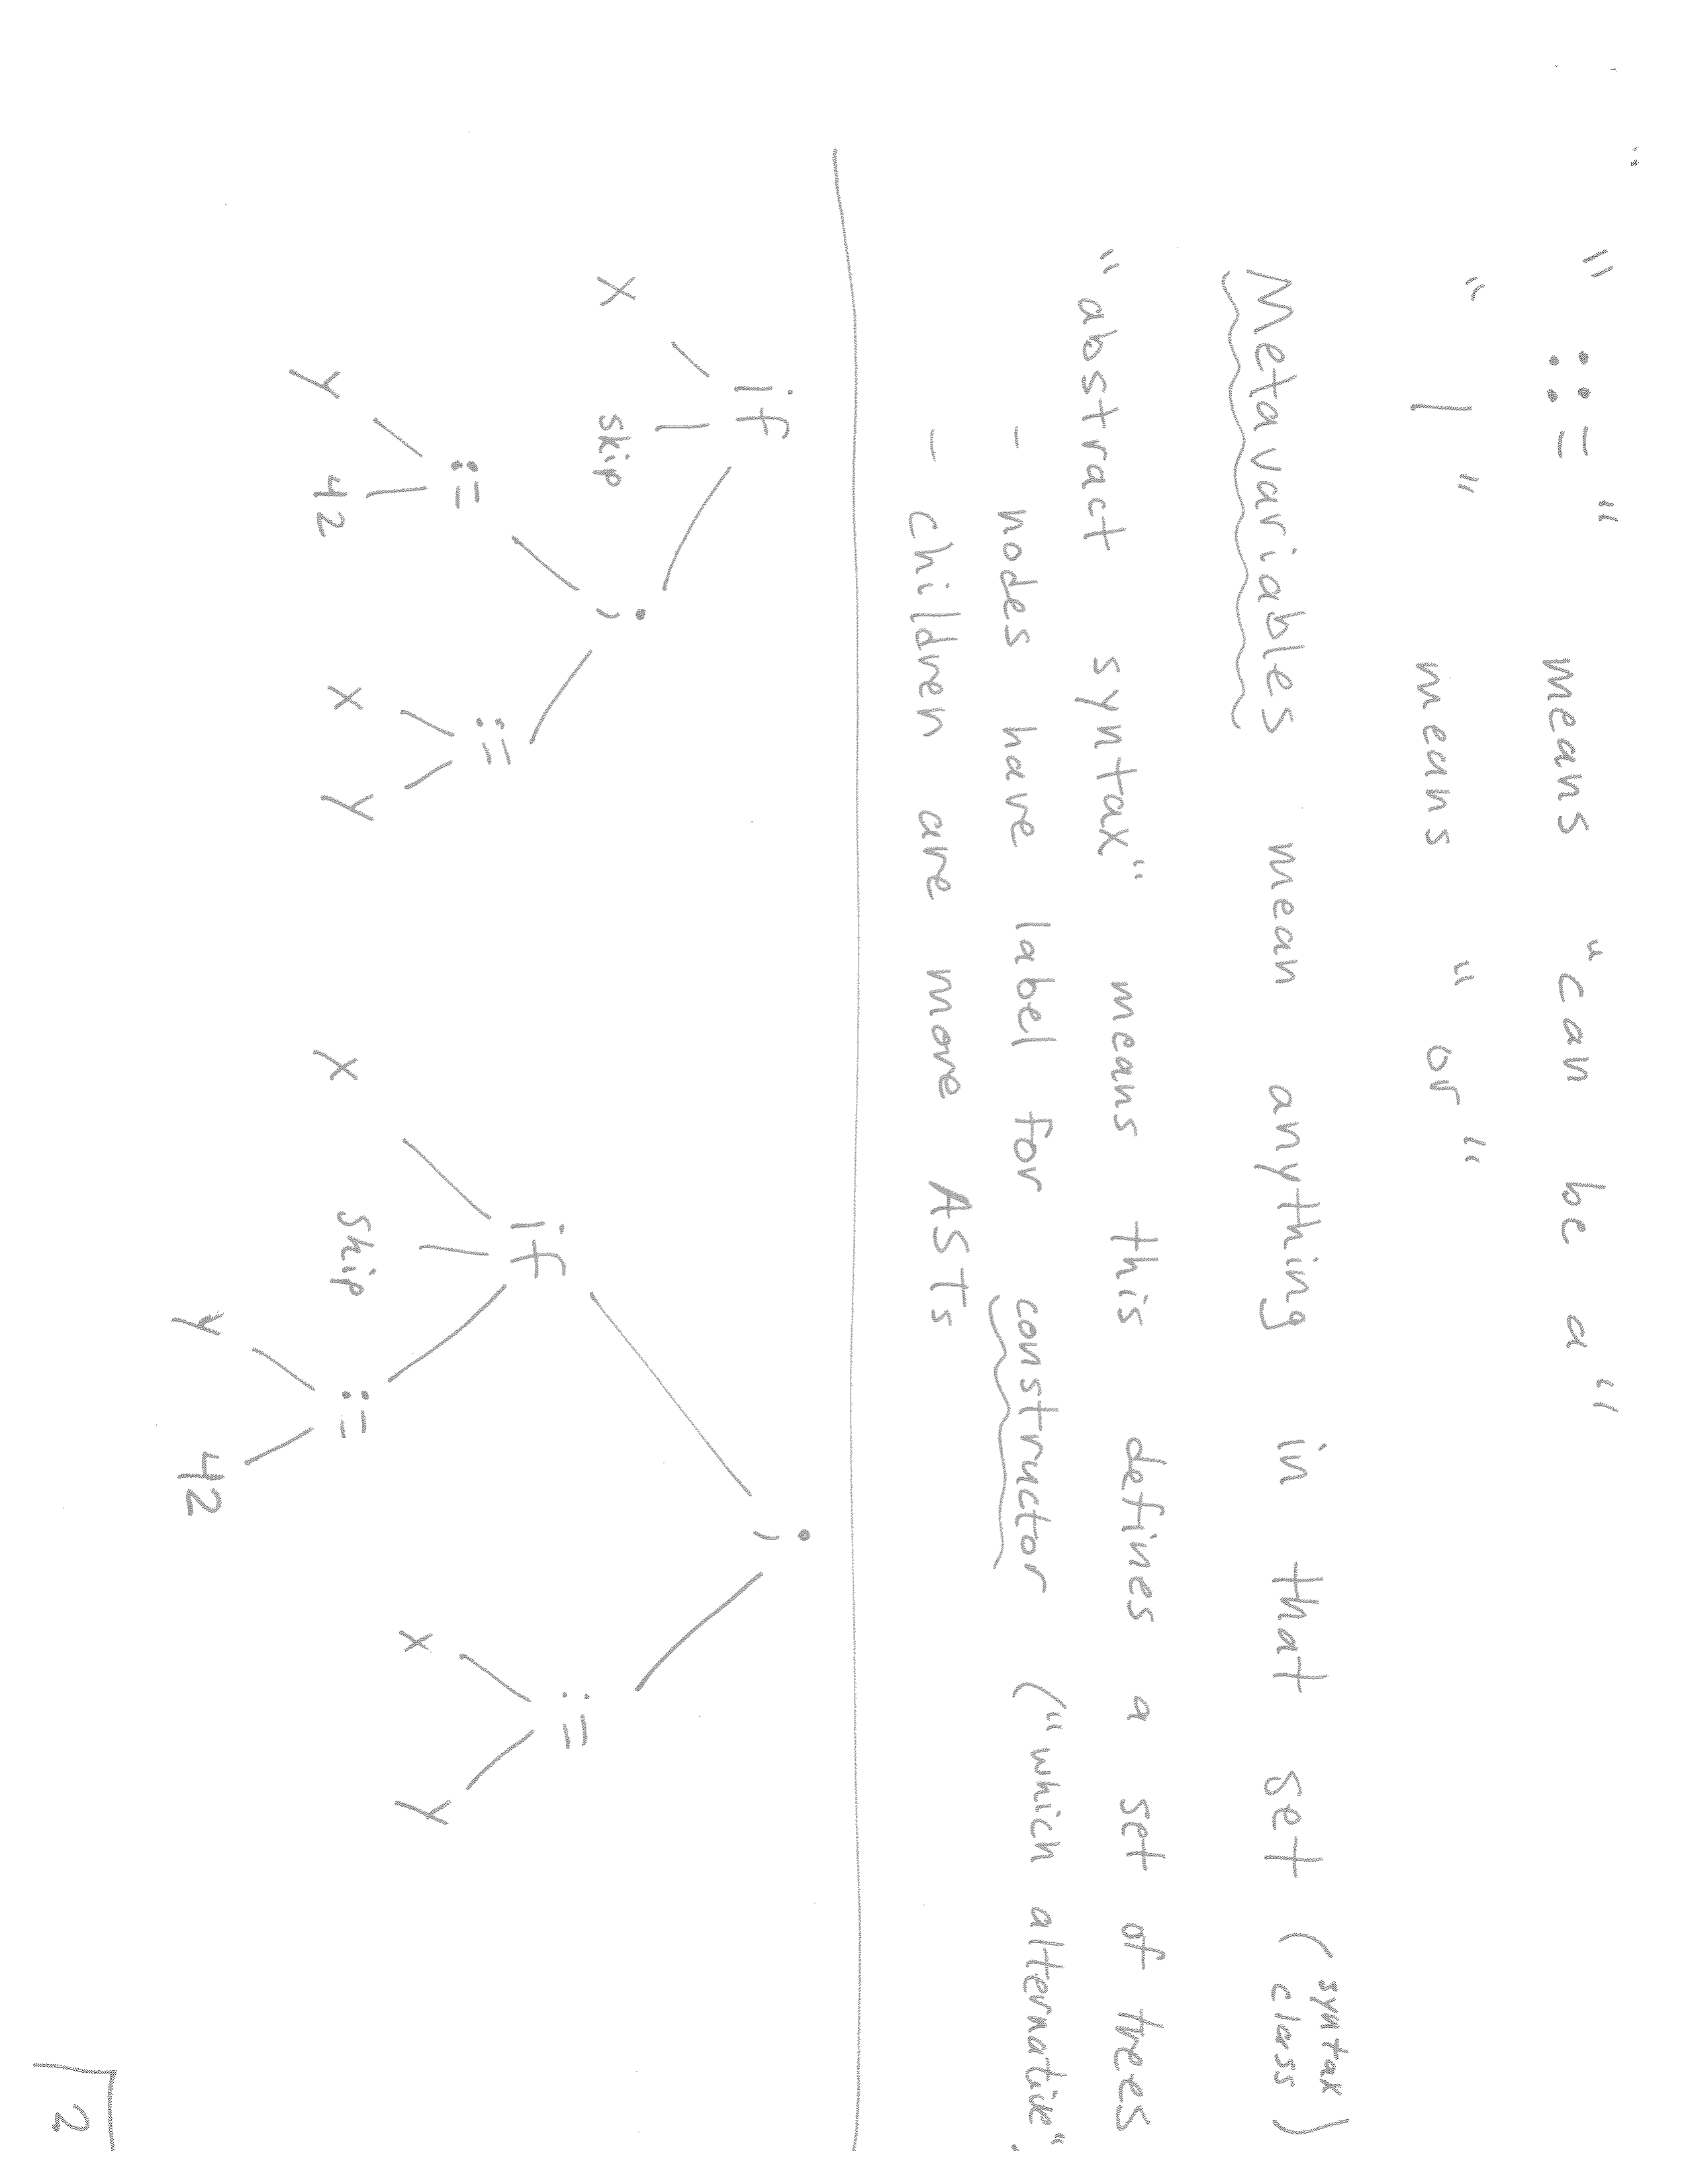 "::=" means "can be a"
"|" means "or"
Metavariables mean anything in that set (syntax class)
"abstract syntax" means this defines a set of trees
- nodes have label for constructor ("which alternative".
- children are more ASTs
if
x skip ;
:= :=
y 42 x y
;
if :=
x skip := x y
y 42
2